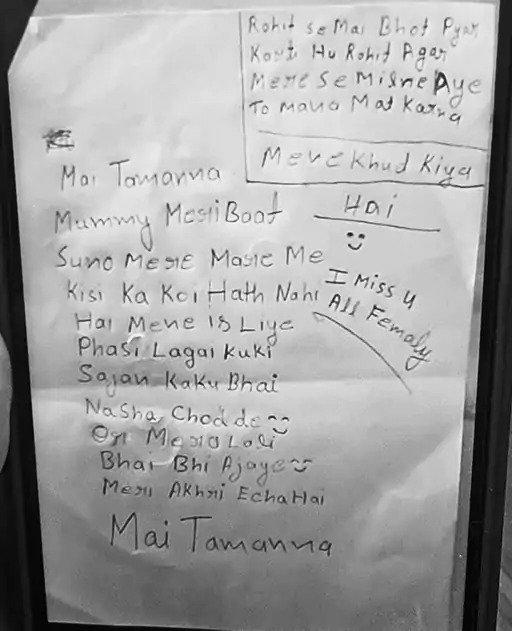 Rohit se Mai Bhot Pyar
Karti Hu Rohit Agar
Mere se Milne Aye
To mana Mat Karna
Mere Khud Kiya
Hai
Mai Tamanna
Mummy Meri Baat
Suno Mere Marne Me
Kisi Ka Koi Hath Nahi
Hai Mene is Liye
Phasi Lagai Kuki
Sajan Kaku Bhai
Nasha Chod de
Or Mera
Bhai Bhi Ajaye
Meri Akhri Echa Hai
Mai Tamanna
I Miss u
All Femaly